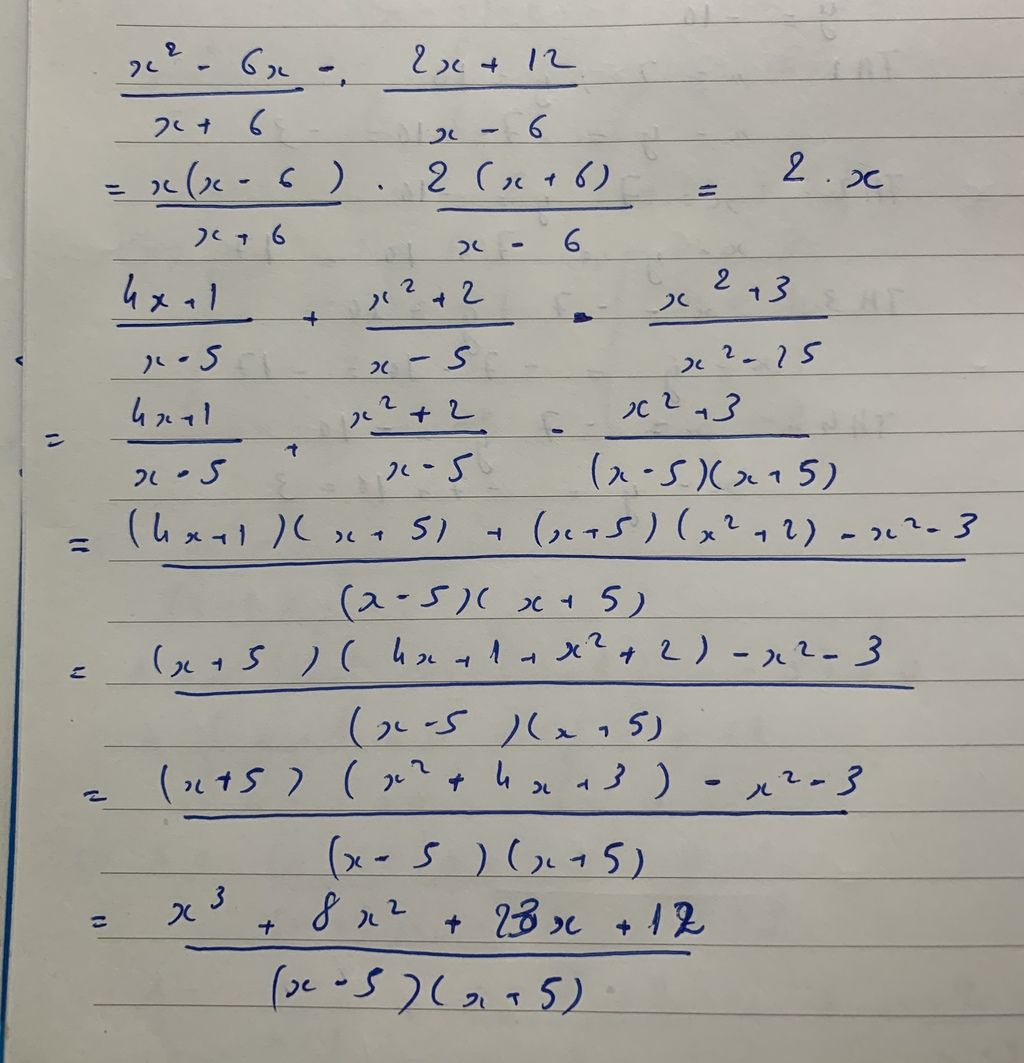 x² - 6x / x + 6 · 2x + 12 / x - 6
= x(x - 6) / x + 6 · 2(x + 6) / x - 6 = 2 · x
4x + 1 / x - 5 + x² + 2 / x - 5 - x² + 3 / x² - 25
= 4x + 1 / x - 5 + x² + 2 / x - 5 - x² + 3 / (x - 5)(x + 5)
= (4x + 1)(x + 5) + (x + 5)(x² + 2) - x² - 3 / (x - 5)(x + 5)
= (x + 5)(4x + 1 + x² + 2) - x² - 3 / (x - 5)(x + 5)
= (x + 5)(x² + 4x + 3) - x² - 3 / (x - 5)(x + 5)
= x³ + 8x² + 23x + 12 / (x - 5)(x + 5)